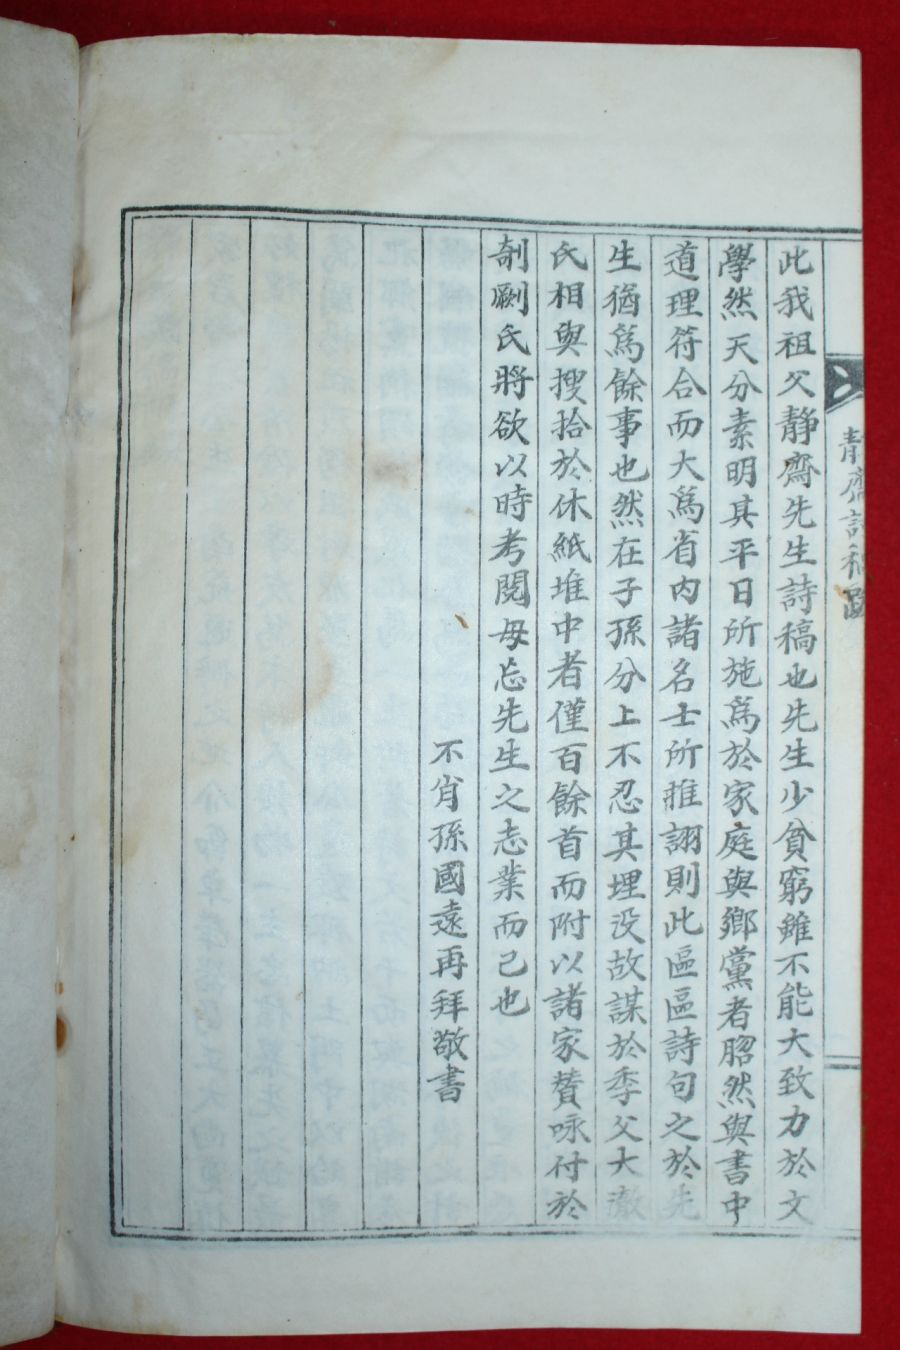 靜齋詩稿跋
此我祖父靜齋先生詩稿也先生少貧窮雖不能大致力於文
學然天分素明其平日所施爲於家庭與鄉黨者昭然與書中
道理符合而大爲省內諸名士所推詡則此區區詩句之於先
生猶爲餘事也然在子孫分上不忍其埋没故謀於季父大澈
氏相與搜拾於休紙堆中者僅百餘首而附以諸家贊咏付於
剞劂氏將欲以時考閱毋忘先生之志業而已也
不肖孫國遠再拜敬書